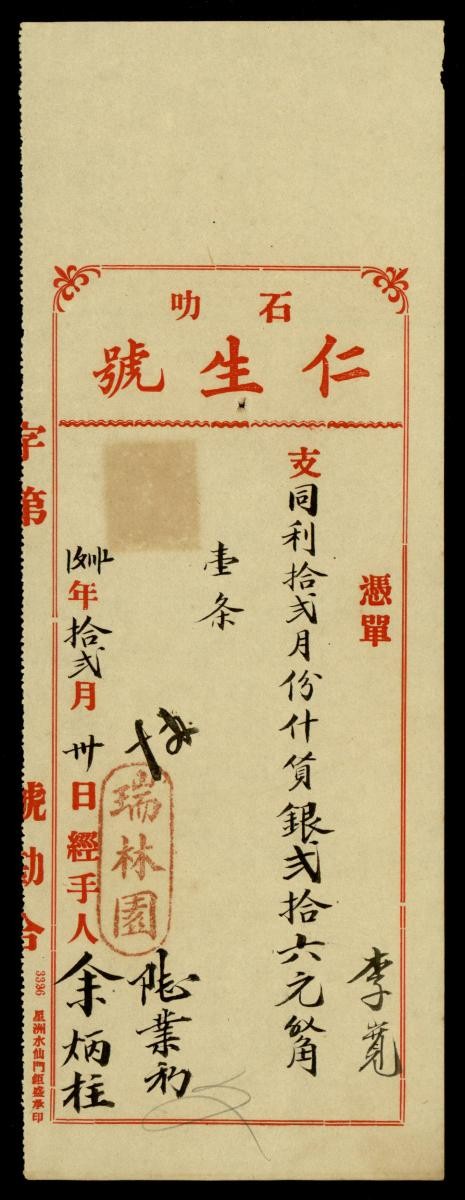 石叻
仁生號
憑單
李寬
支同利拾弍月份什貨銀弍拾六元
壹条
瑞林園
年拾弍月卅日經手人余炳柱
字第
號勘合
3396 星洲水仙門鉅盛承印